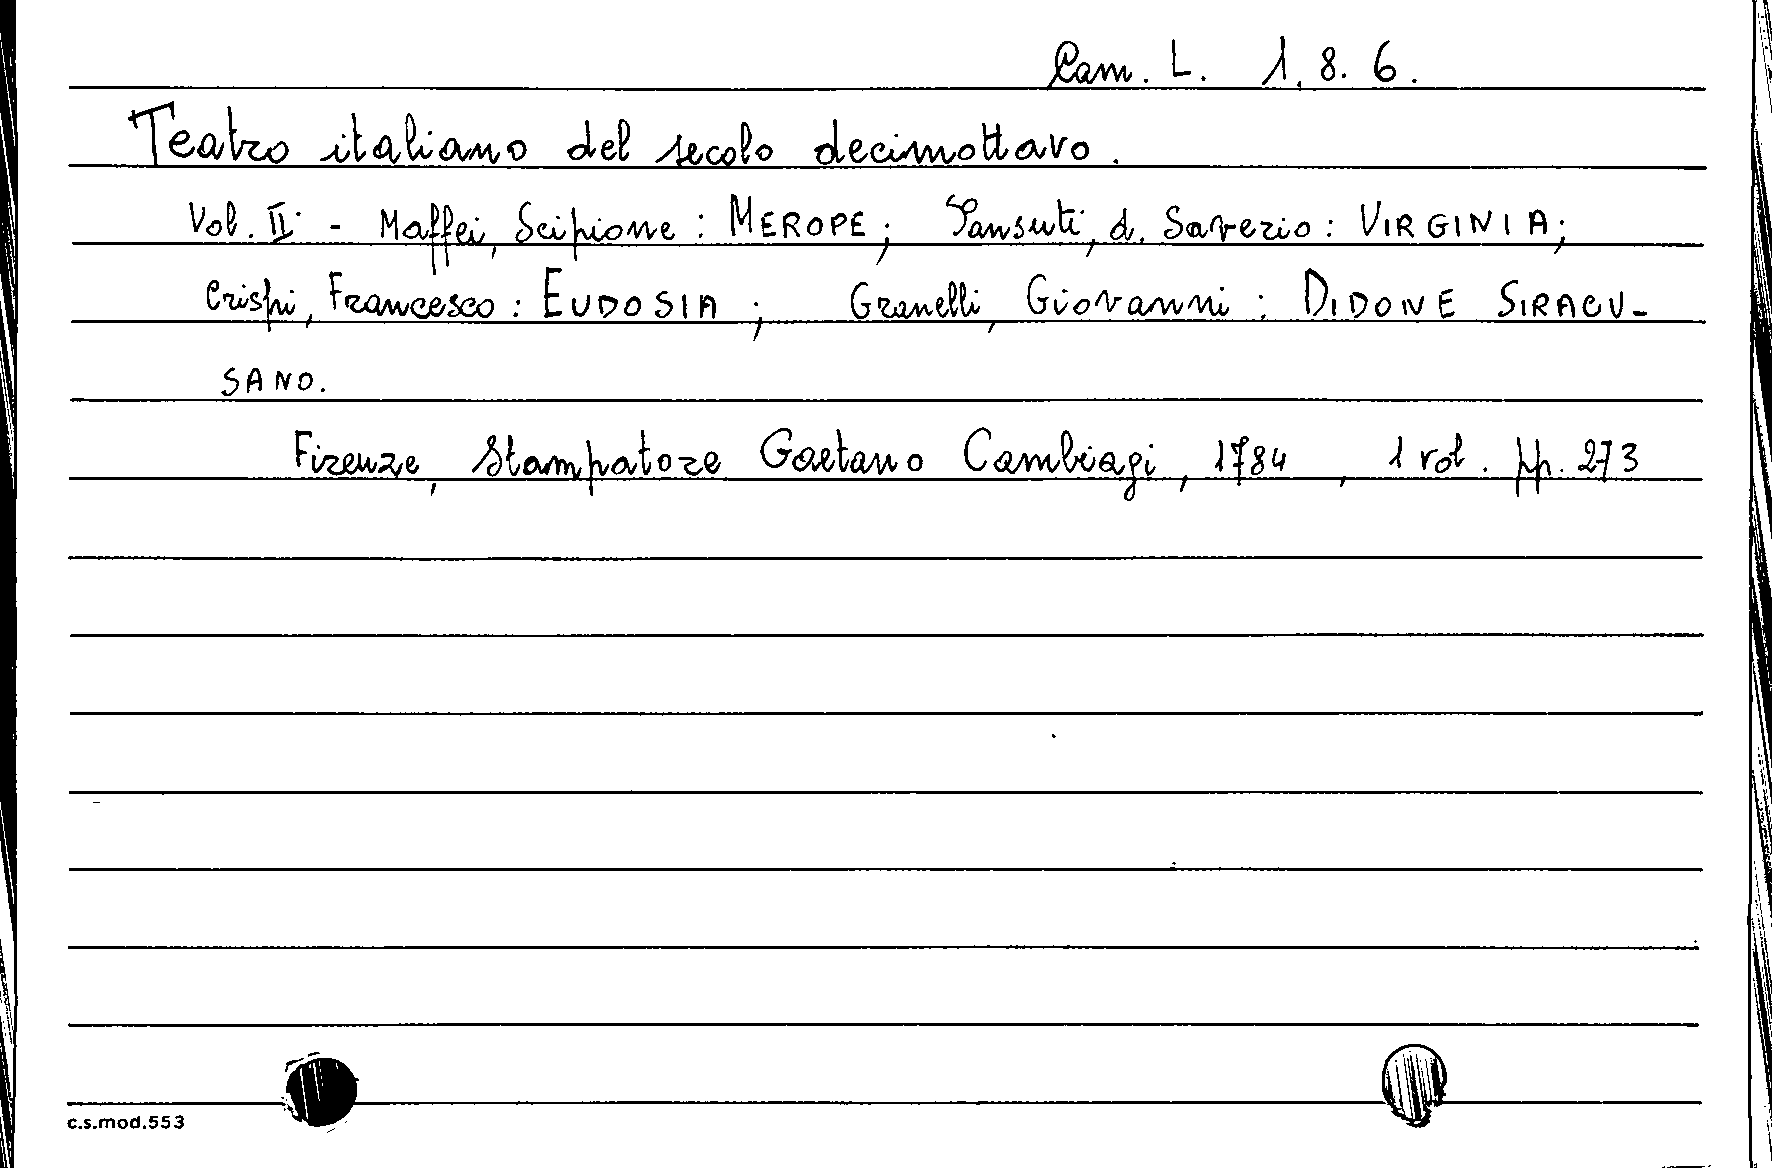 Cam. L. 1.8.6.
Teatro italiano del secolo decimottavo.
Vol. II - Maffei, Scipione: MEROPE; Pansuti, d. Saverio: VIRGINIA;
Crispi, Francesco: EUDOSIA; Granelli, Giovanni: DIDONE SIRACU-
SANO.
Firenze, Stampatore Gaetano Cambiagi, 1784, 1 vol. pp. 273
c.s.mod.553